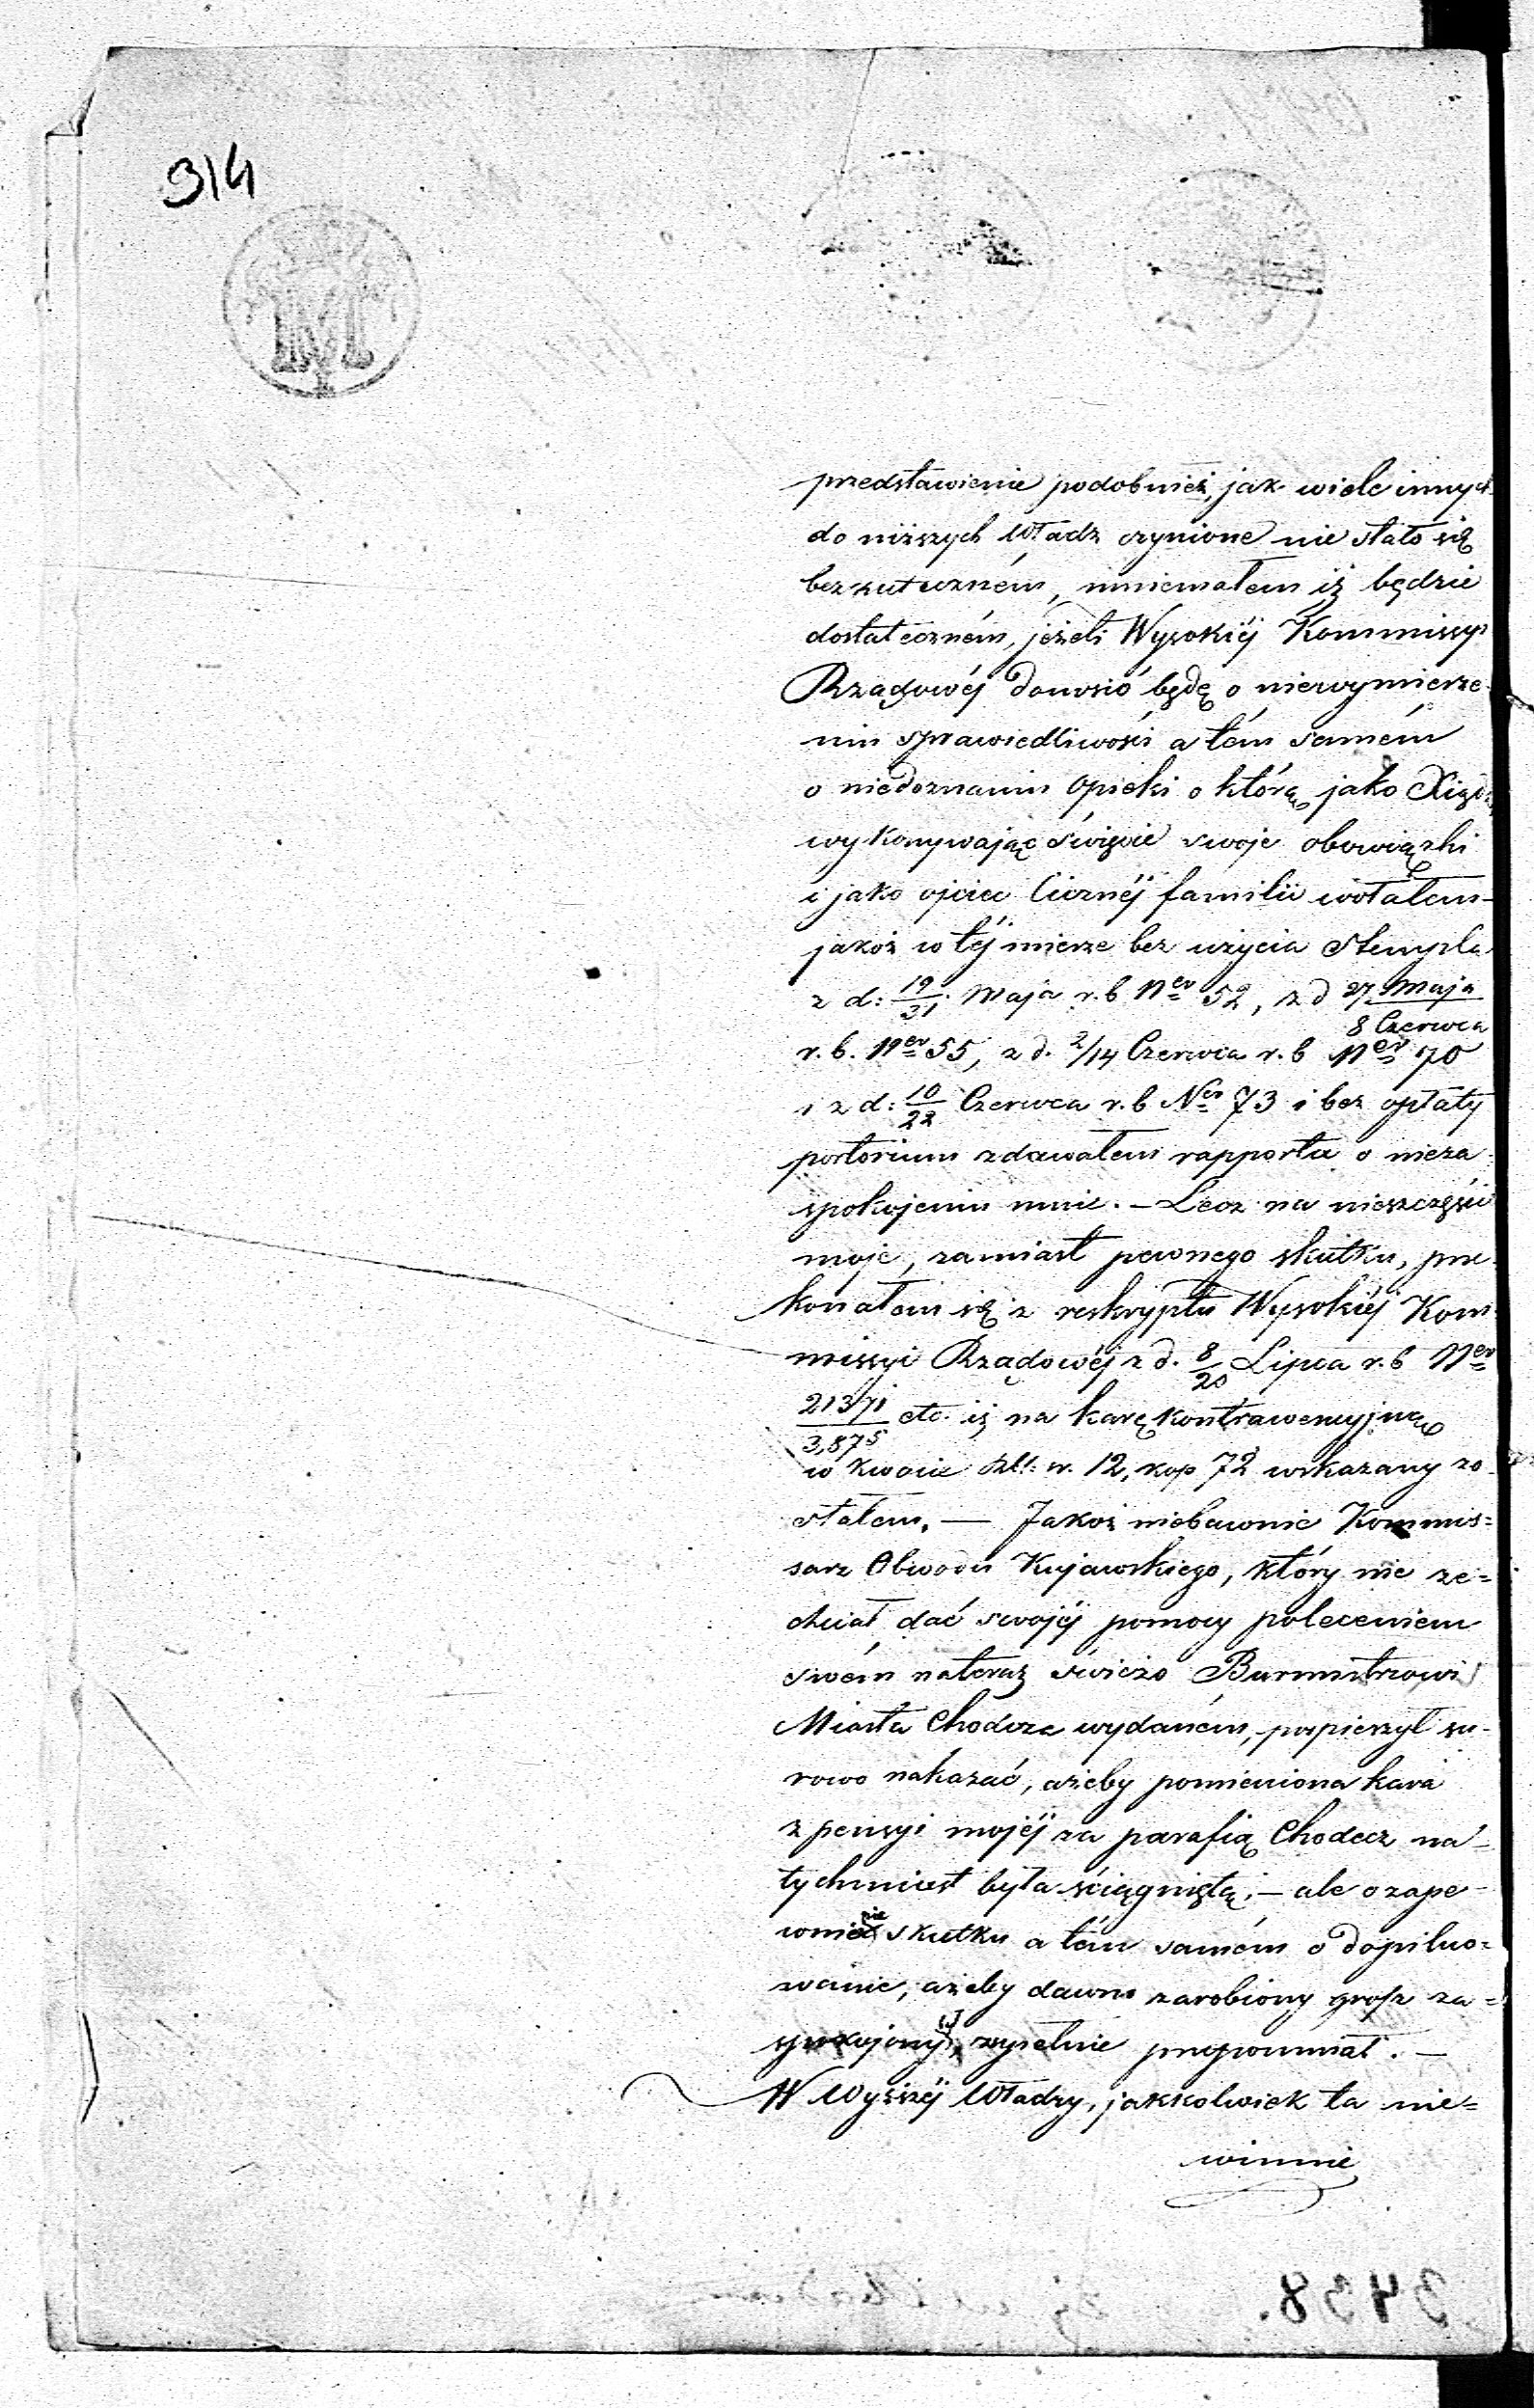 314
M
przedstawienie podobnież, jak wiele innych
do niższych Władz czynione nie stało się
bezskuteczném, mniemałem iż będzie
dostateczném, jeżeli Wysokiéj Kommissyi
Rządowéj donosić będę o niewymierze-
niu sprawiedliwości a tém samém
o niedoznaniu opieki o którą jako Xiądz
wykonywając święcie swoje obowiązki
i jako ojciec licznéj familii wołałem
jakoż w téj mierze bez użycia stempla
z d: 19/31 Maja r.b Ner 52, z d 27 Maja/8 Czerwca
r.b. Ner 55, z d. 2/14 Czerwca r.b Ner 70
i z d: 10/22 Czerwca r.b Ner 73 i bez opłaty
portorium zdawałem rapporta o nieza-
spokojeniu mnie. – Lecz na nieszczęście
moje, zamiast pewnego skutku, prze-
konałem się z reskryptu Wysokiéj Kom-
missyi Rządowéj z d. 8/20 Lipca r.b Ner
21371/3,875 etc. iż na karę kontrawencyjną
w kwocie Rll: sr. 12, kop 72 wskazany zo-
stałem. — Jakoż niebawnie Kommis=
sarz Obwodu Kujawskiego, który nie ze=
chciał dać swojéj pomocy poleceniem
swém nateraz świeżo Burmistrzowi
Miasta Chodcza wydaném, pospieszył su-
rowo nakazać, ażeby pomieniona kara
z pensyi mojéj za parafią Chodecz na-
tychmiast była ściągniętą, – ale o zape-
wnienie skutku a tém samém o dopilno=
wanie, ażeby dawno zarobiony grosz za=
spokojony, zupełnie przypomniał. –
W Wyższéj Władzy, jakkolwiek ta nie=
winnie
3438.